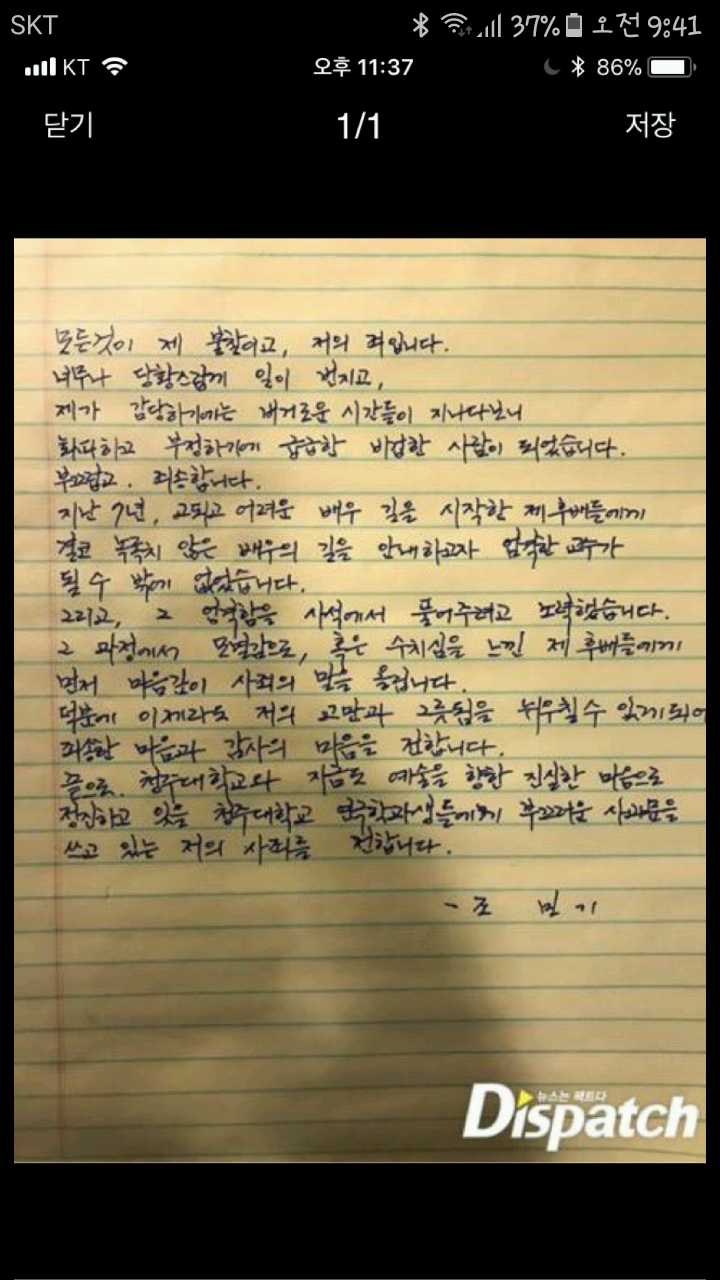 SKT 37% 오전 9:41
KT 오후 11:37 86%
닫기 1/1 저장
모든것이 제 불찰이고, 저의 죄입니다.
너무나 당황스럽게 일이 번지고,
제가 감당하기에는 버거로운 시간들이 지나다보니
회피하고 부정하기에 급급한 비겁한 사람이 되었습니다.
부끄럽고, 죄송합니다.
지난 7년, 고되고 어려운 배우 길을 시작한 제 후배들에게
결코 녹록치 않은 배우의 길을 안내하고자 엄격한 교수가
될 수 밖에 없었습니다.
그리고, 그 엄격함을 사석에서 풀어주려고 노력했습니다.
그 과정에서 모멸감으로, 혹은 수치심을 느낀 제 후배들에게
먼저 마음깊이 사죄의 말을 올립니다.
덕분에 이제라도 저의 교만과 그릇됨을 뉘우칠 수 있게 되어
죄송한 마음과 감사의 마음을 전합니다.
끝으로, 청주대학교와 지금도 예술을 향한 진실한 마음으로
정진하고 있을 청주대학교 연극학과 학생들에게 부끄러운 사과문을
쓰고 있는 저의 사죄를 전합니다.
- 조 민 기
뉴스는 팩트다
Dispatch